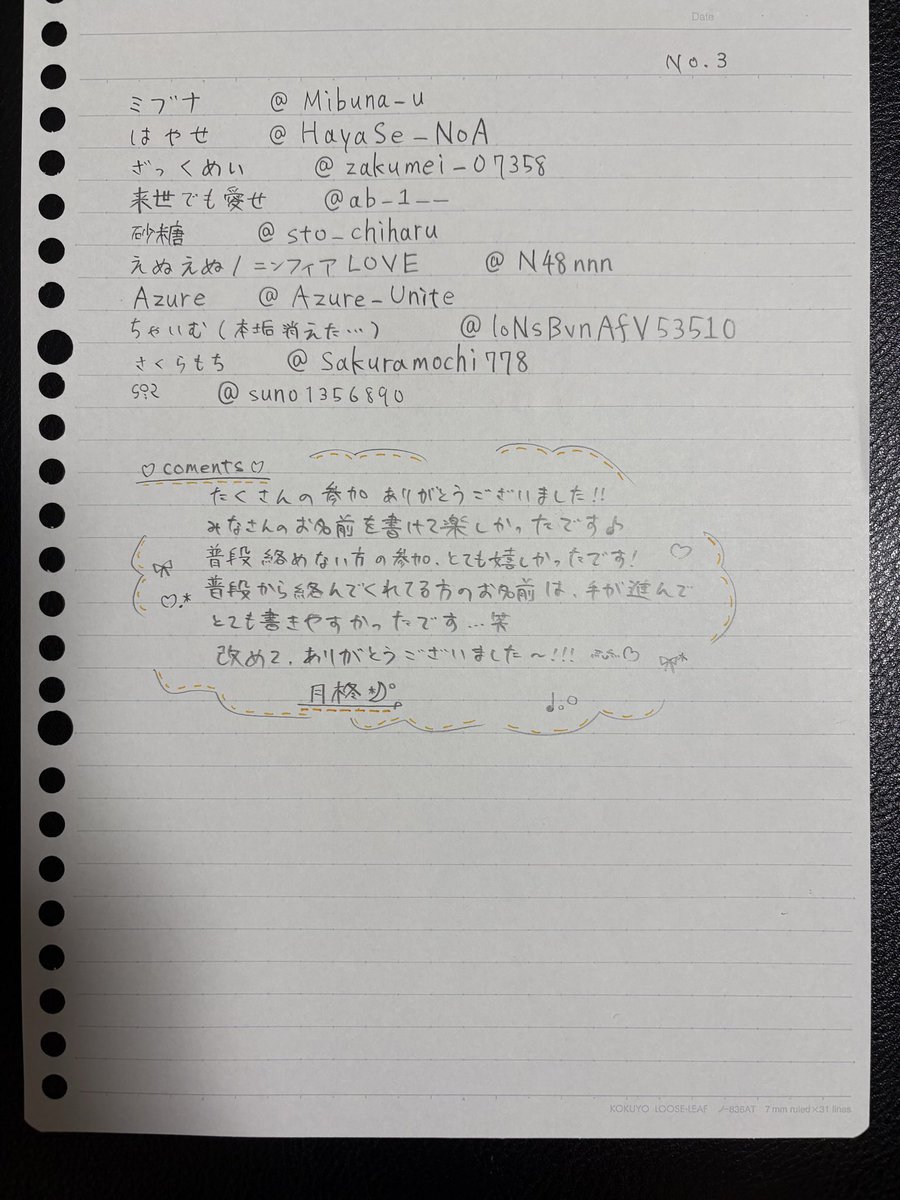 Date
No.3
ミブナ @Mibuna_u
はやせ @HayaSe_NoA
ざっくめい @zakumei_07358
来世でも愛せ @ab_1__
砂糖 @sto_chiharu
えぬえぬ/ニンフィアLOVE @N48nnn
Azure @Azure_Unite
ちゃいむ(本垢消えた…) @loNsBvnAfV53510
さくらもち @Sakuramochi778
@suno1356890
♡coments♡
たくさんの参加ありがとうございました!!
みなさんのお名前を書けて楽しかったです♪
普段絡めない方の参加、とても嬉しかったです!
普段から絡んでくれてる方のお名前は、手が進んで
とても書きやすかったです…笑
改めて、ありがとうございました〜!!!
月柊
KOKUYO LOOSE-LEAF ノ-836AT 7 mm ruled×31 lines